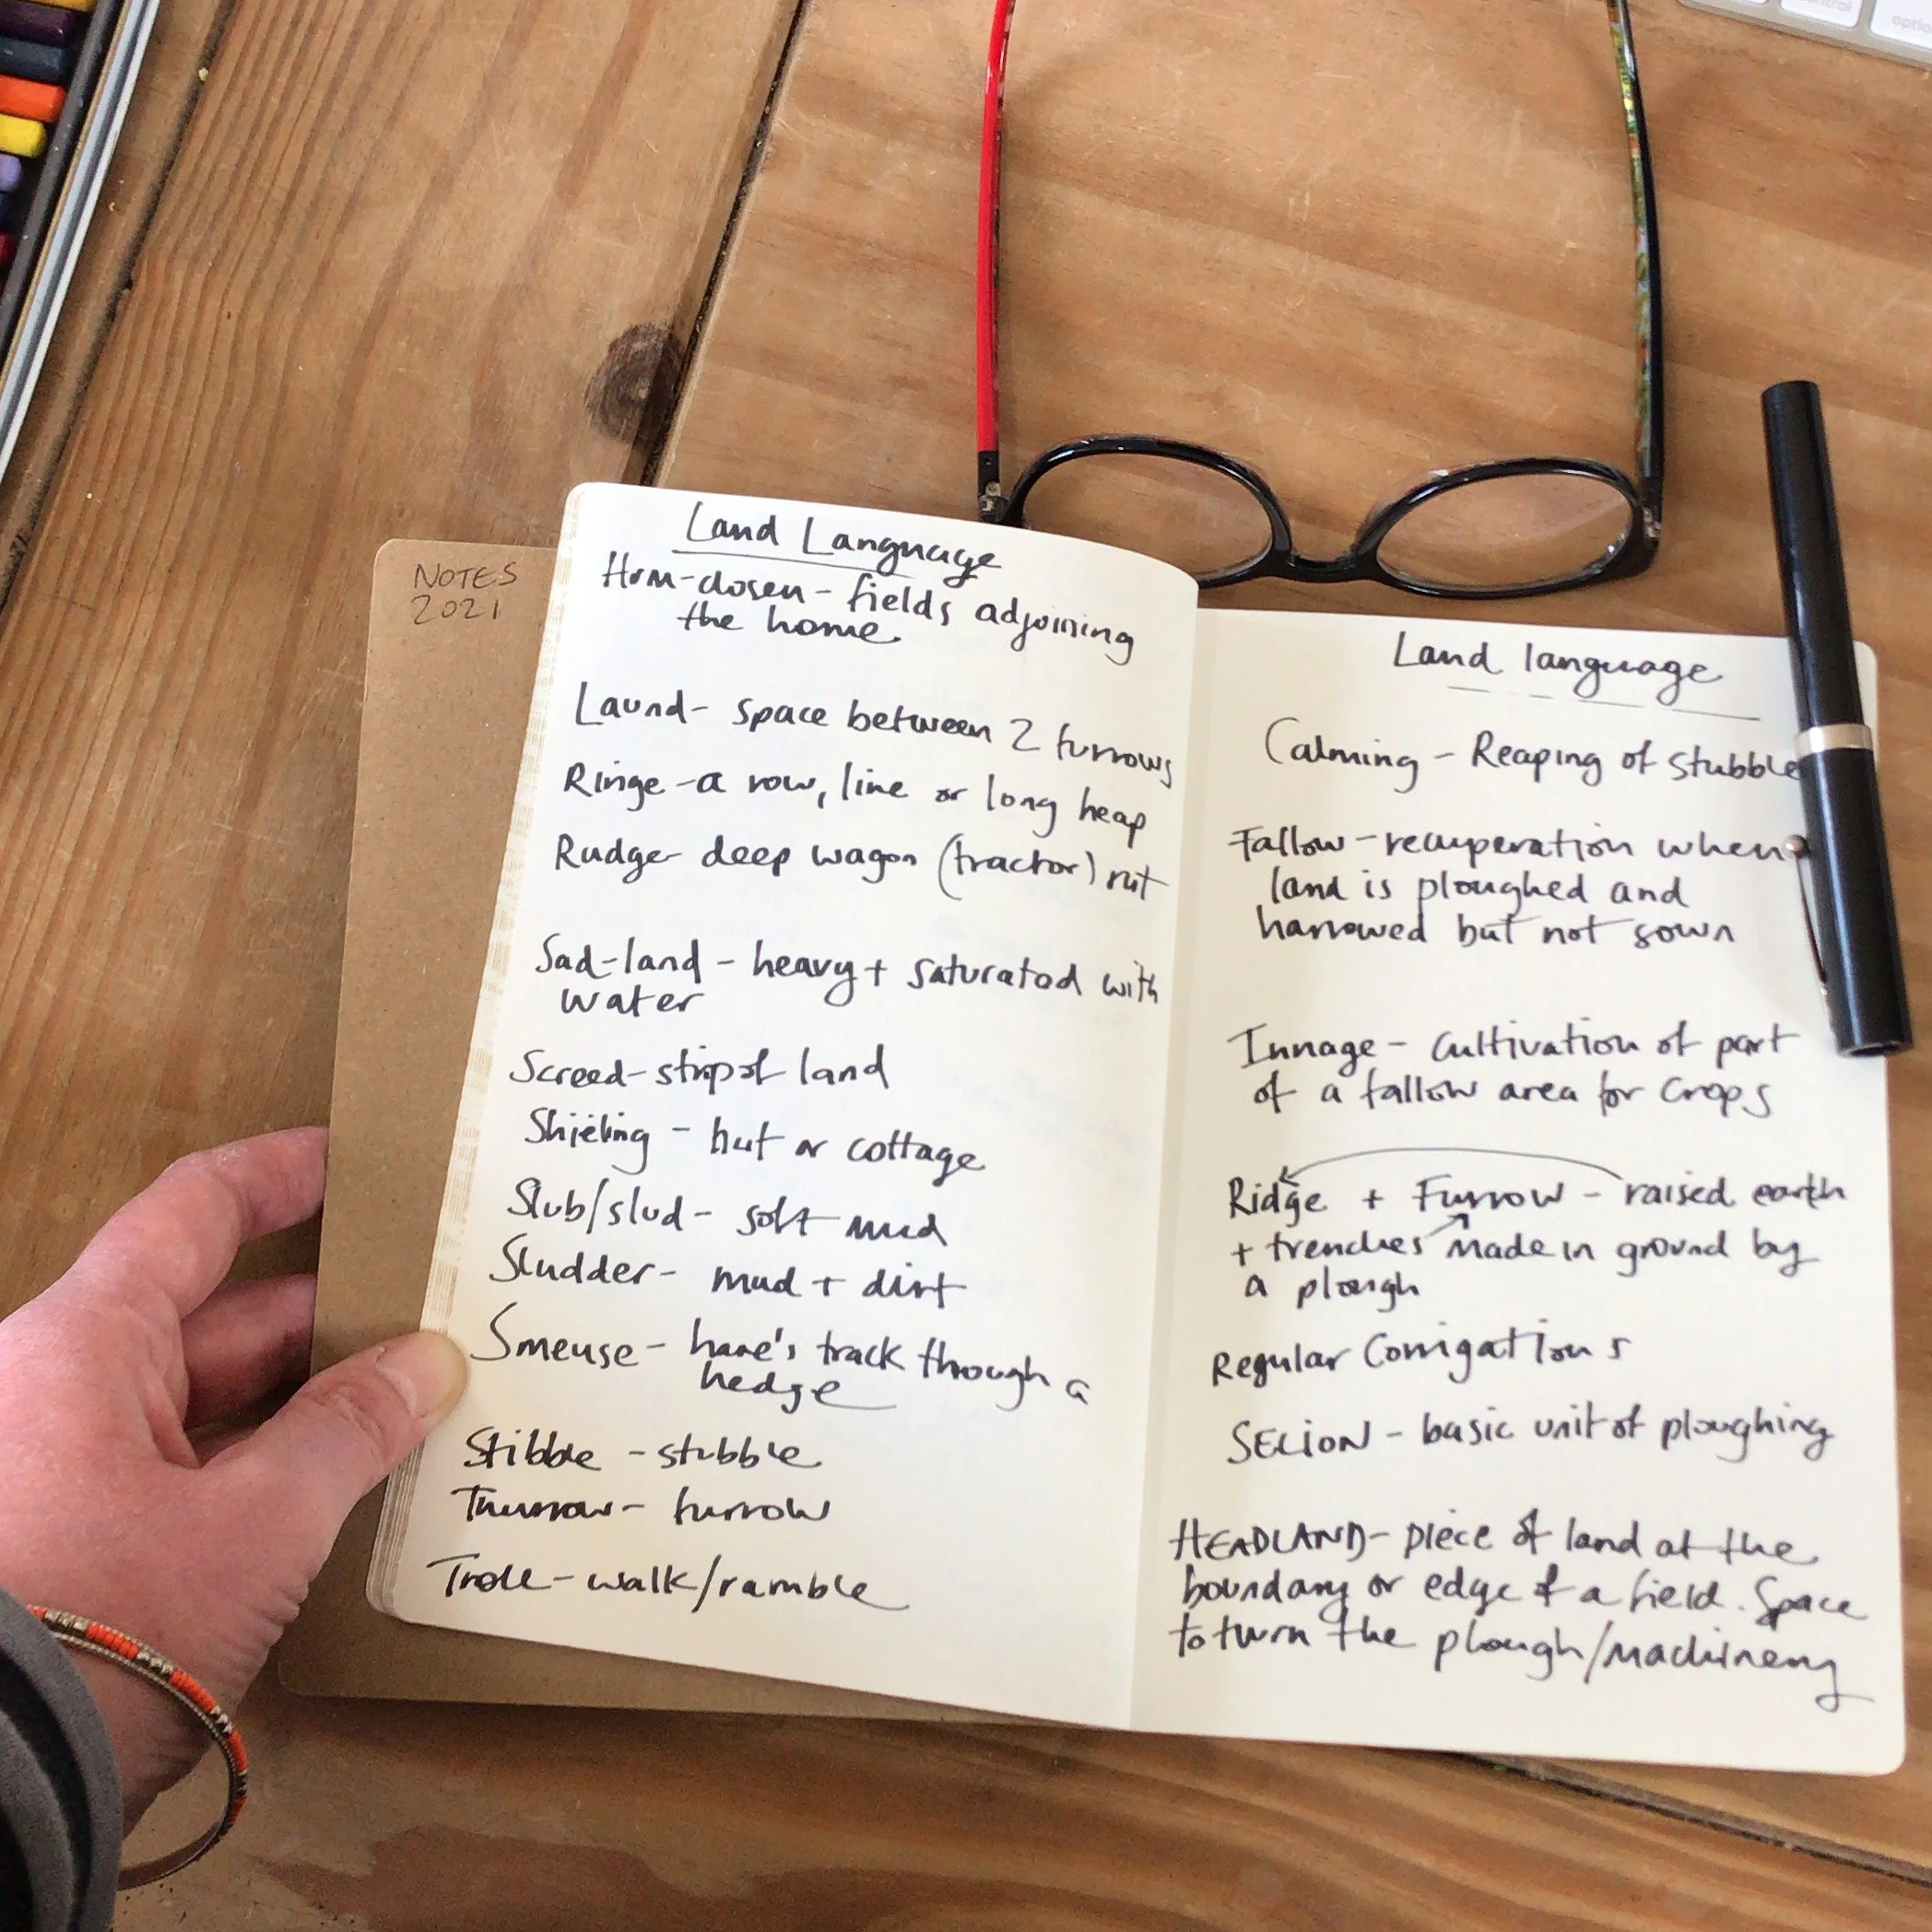 NOTES
2021
Land Language
Hom-closen - fields adjoining
the home
Laund - space between 2 furrows
Ringe - a row, line or long heap
Rudge - deep wagon (tractor) rut
Sad-land - heavy + saturated with
water
Screed - strip of land
Shieling - hut or cottage
Slub/slud - soft mud
Sludder - mud + dirt
Smeuse - hare's track through a
hedge
Stibble - stubble
Thurrow - furrow
Trole - walk/ramble
Land language
Calming - Reaping of stubble
Fallow - recuperation when
land is ploughed and
harrowed but not sown
Innage - cultivation of part
of a fallow area for crops
Ridge + Furrow - raised earth
+ trenches made in ground by
a plough
Regular Corrigations
SELION - basic unit of ploughing
HEADLAND - piece of land at the
boundary or edge of a field. Space
to turn the plough/machinery